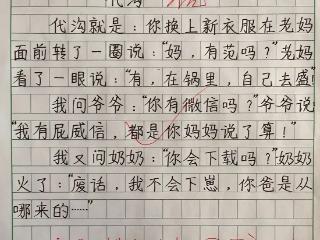 代沟
代沟就是：你换上新衣服在老妈
面前转了一圈说：“妈，有范吗？”老妈
看了一眼说：“有，在锅里，自己去盛！”
我问爷爷：“你有微信吗？”爷爷说：
“我有屁威信，都是你妈妈说了算！”
我又问奶奶：“你会下载吗？”奶奶
火了：“废话，我不会下崽，你爸是从
哪来的……”